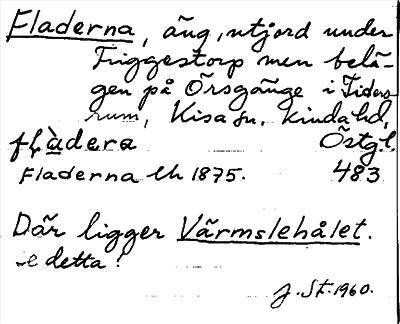 Fladerna, äng, utjord under
Friggestorp men belä-
gen på Örsgänge i Tiders-
rum, Kisa sn. Kinda hd,
flàdera Östgl.
Fladerna lh 1875. 483
Där ligger Värmslehålet.
se detta!
J. St. 1960.